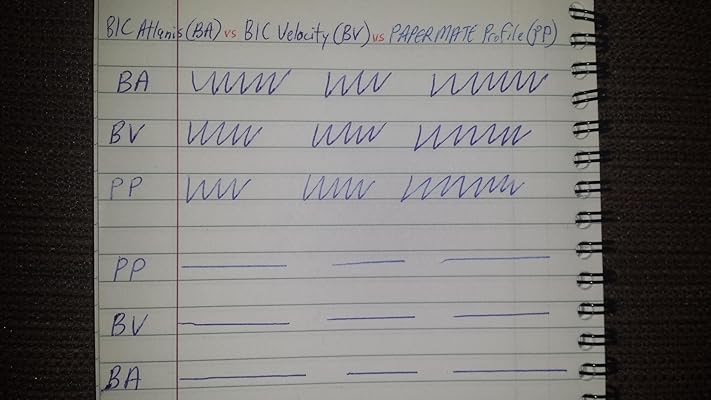 BIC Atlanis (BA) vs BIC Velocity (BV) vs PAPERMATE Profile (PP)
BA
BV
PP
PP
BV
BA